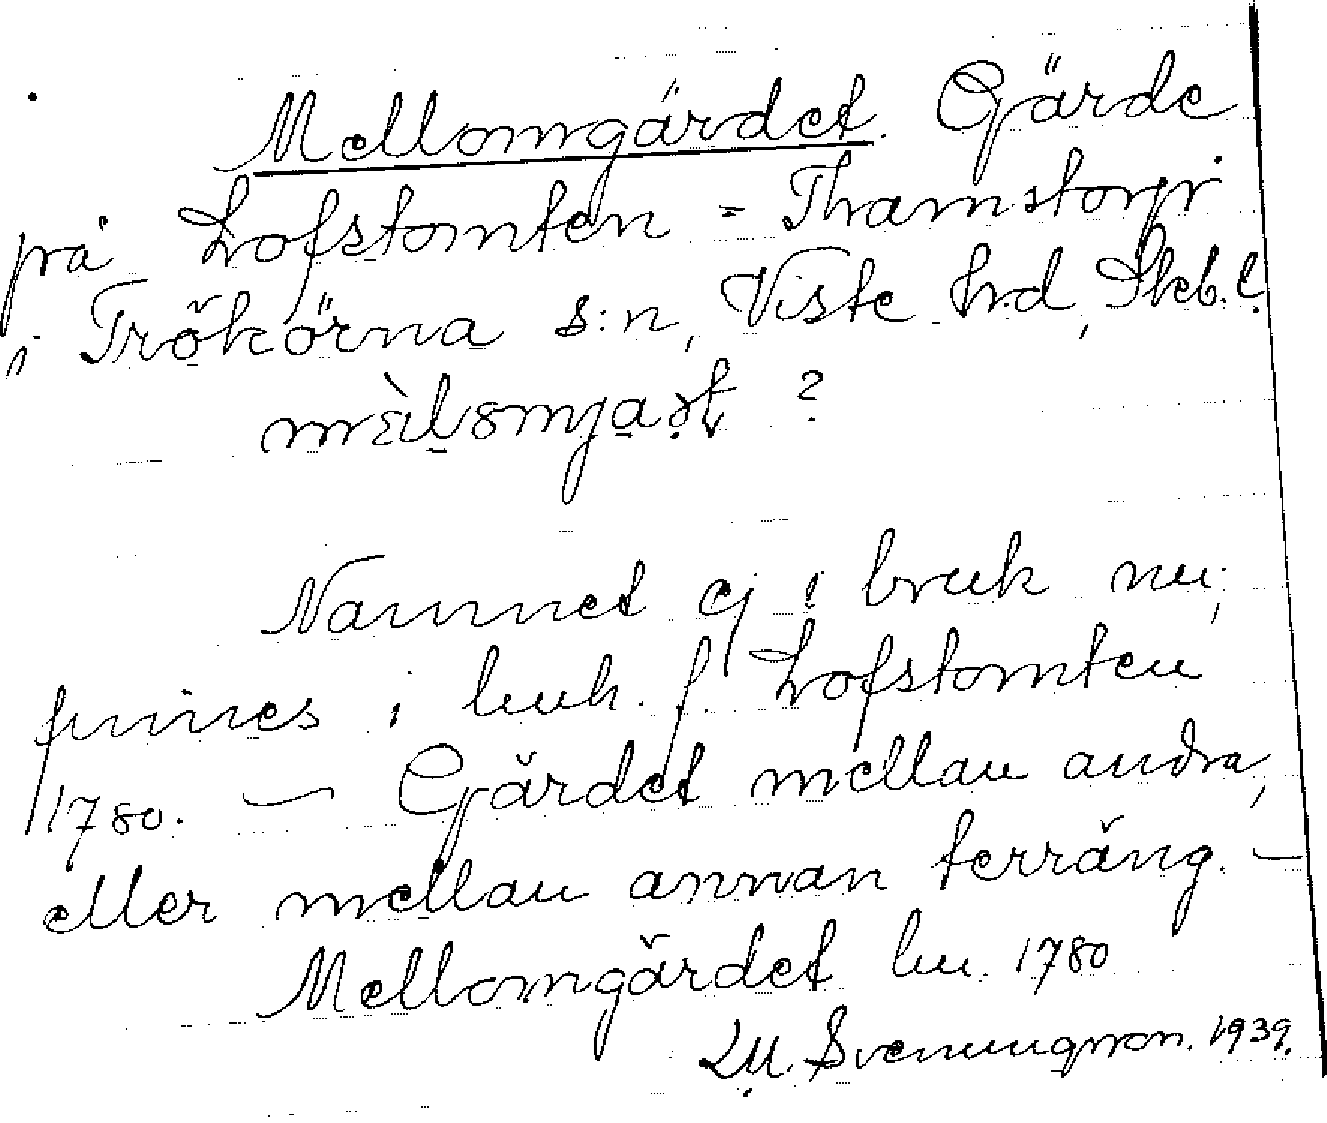 Mellomgärdet. Gärde
på Lofstomten = Thamstorp i
i Trökörna s:n, Viste hrd, Skb. l.
?
Namnet ej i bruk nu;
finnes i luuh. f. Lofstomten
1780. — Gärdet mellan andra,
eller mellan annan terräng. —
Mellomgärdet luu. 1780
LM. Svenungsson. 1939.